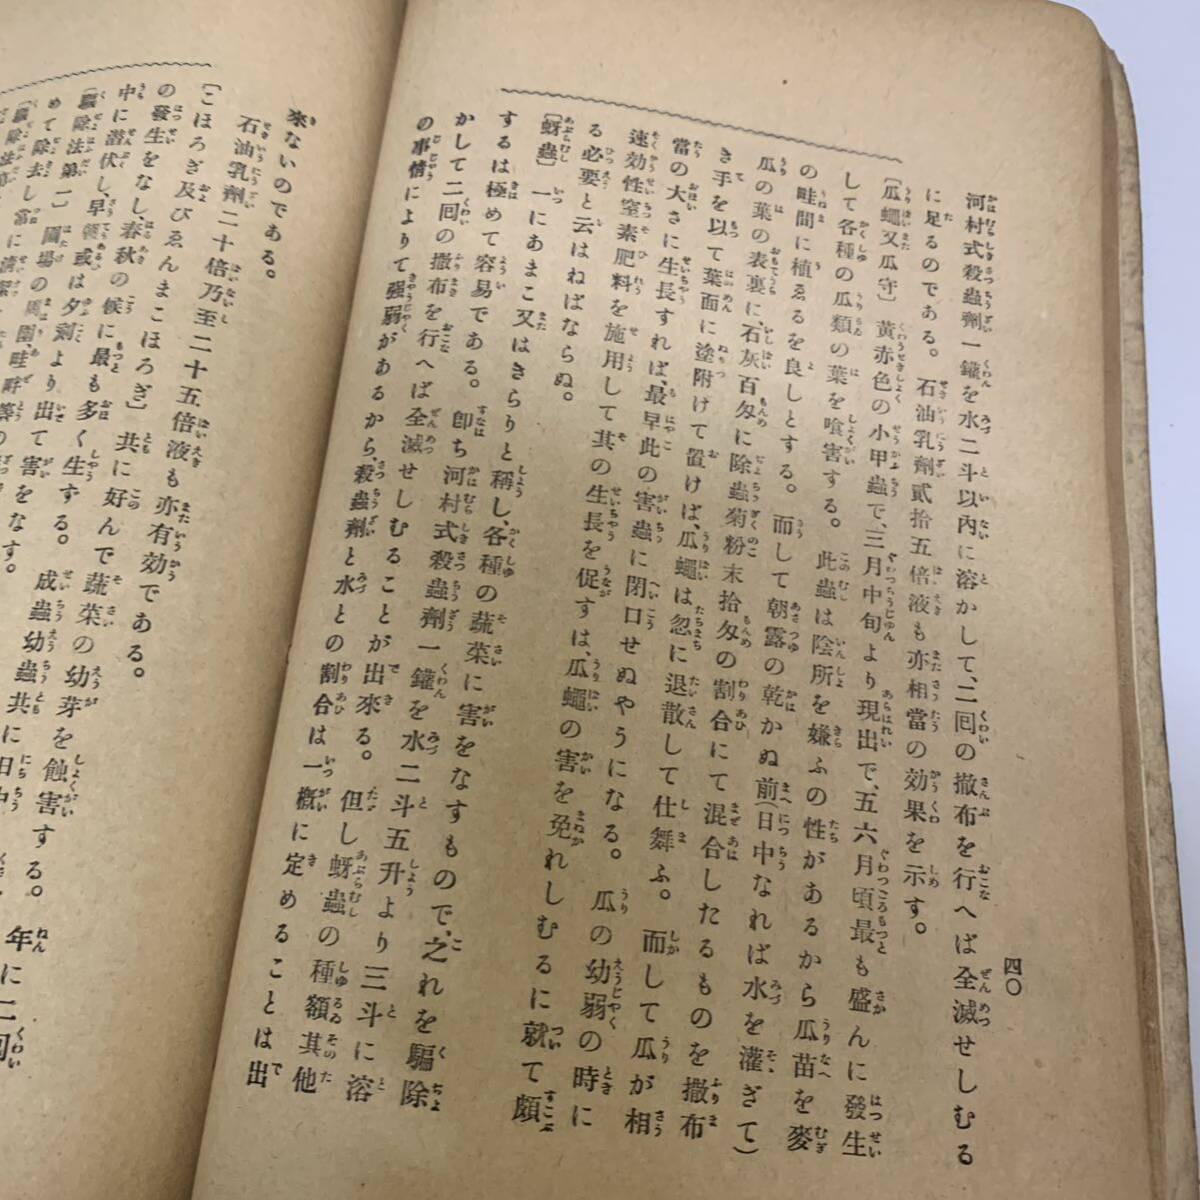 四〇
河村式殺蟲劑一罐を水二斗以內に溶かして、二囘の撒布を行へば全滅せしむる
に足るのである。石油乳劑貳拾五倍液も亦相當の効果を示す。
〔瓜蠅又瓜守〕黃赤色の小甲蟲で、三月中旬より現出で、五六月頃最も盛んに發生
して各種の瓜類の葉を喰害する。此蟲は陰所を嫌ふの性があるから瓜苗を麥
の畦間に植ゑるを良しとする。而して朝露の乾かぬ前(日中なれば水を灌ぎて)
瓜の葉の表裏に石灰百匁に除蟲菊粉末拾匁の割合にて混合したるものを撒布
き手を以て葉面に塗附けて置けば、瓜蠅は忽に退散して仕舞ふ。而して瓜が相
當の大さに生長すれば、最早此の害蟲に閉口せぬやうになる。瓜の幼弱の時に
速効性窒素肥料を施用して其の生長を促すは、瓜蠅の害を免れしむるに就て頗
る必要と云はねばならぬ。
〔蚜蟲〕一にあまこ又はきらりと稱し、各種の蔬菜に害をなすもので、之れを驅除
するは極めて容易である。卽ち河村式殺蟲劑一罐を水二斗五升より三斗に溶
かして二囘の撒布を行へば全滅せしむることが出來る。但し蚜蟲の種額其他
の事情によりて强弱があるから、殺蟲劑と水との割合は一槪に定めることは出
來ないのである。
石油乳劑二十倍乃至二十五倍液も亦有効である。
〔こほろぎ及びゑんまこほろぎ〕共に好んで蔬菜の幼芽を蝕害する。年に二囘
の發生をなし、春秋の候に最も多く生ずる。成蟲幼蟲共に日中
中に潜伏し、早朝或は夕刻より出て害をなす。
〔驅除法第一〕圃場の周圍、畦畔等の
めて除去し常に淸潔
〔驅除法第